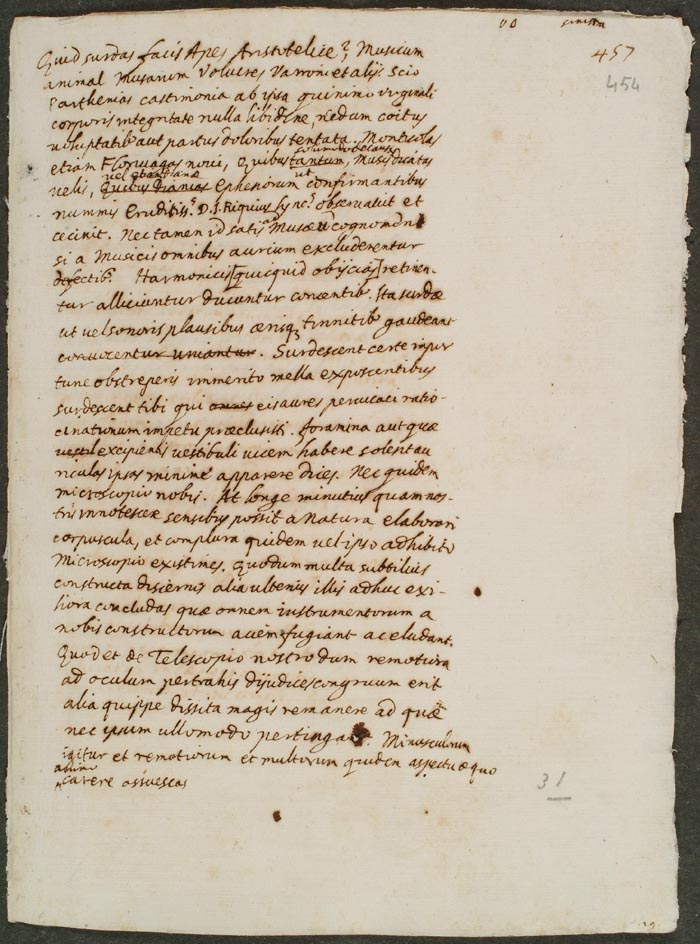 sinistra
457
454
Quid surdas facis Apes Aristotelice? Musicum
animal Musarum Volucres Varroni et alijs. Scio
Parthenias castimonia ab ipsa quinimo virginali
corporis integritate nulla libidine nedum coitus
voluptatib aut partus doloribus tentata. Monticolas
etiam Florivagas novi, quibus tantum, Musis dicatas
vel
velis, Quibus Ephesiorum ut confirmantibus
nummis Eruditiss.s D. J. Riquius Lync.s observavit et
cecinit. Nec tamen id satis Musae cognomdni
si a Musicis omnibus aurium excluderentur
defectib. Harmonicis [quicquid obijcias] retinen-
tur alliciuntur ducuntur concentib. Ita surdae
ut vel sonoris plausibus aerisq tinnitib gaudeant
convocentur uniantur. Surdescent certe impor
tune obstreperis immerito mella exposcentibus
surdescent tibi qui omnes eis aures pervicaci ratio-
cinationum impetu praeclusisti. foramina aut quae
excipientis vestibuli vicem habere solent au
riculas ipsas minime apparere dices. Nec quidem
microscopio nobis. At longe minutius quam nos-
tris innotescere sensibus possit a Natura elaborari
corpuscula, et complura quidem vel ipso adhibito
Microscopio existimes. Quodum multa subtilius
constructa discernis alia ulterius illis adhuc exi-
liora concludas quae omnem instrumentorum a
nobis constructorum aciem fugiant ac eludant.
Quod et de Telescopio nostro dum remotiora
ad oculum pertrahis dijudices congruum erit
alia quippe dissita magis remanere ad quae
nec ipsum ullo modo pertingat. Minusculorum
igitur et remotiorum et multorum quidem aspectu aequo
animo
carere assuescas
31